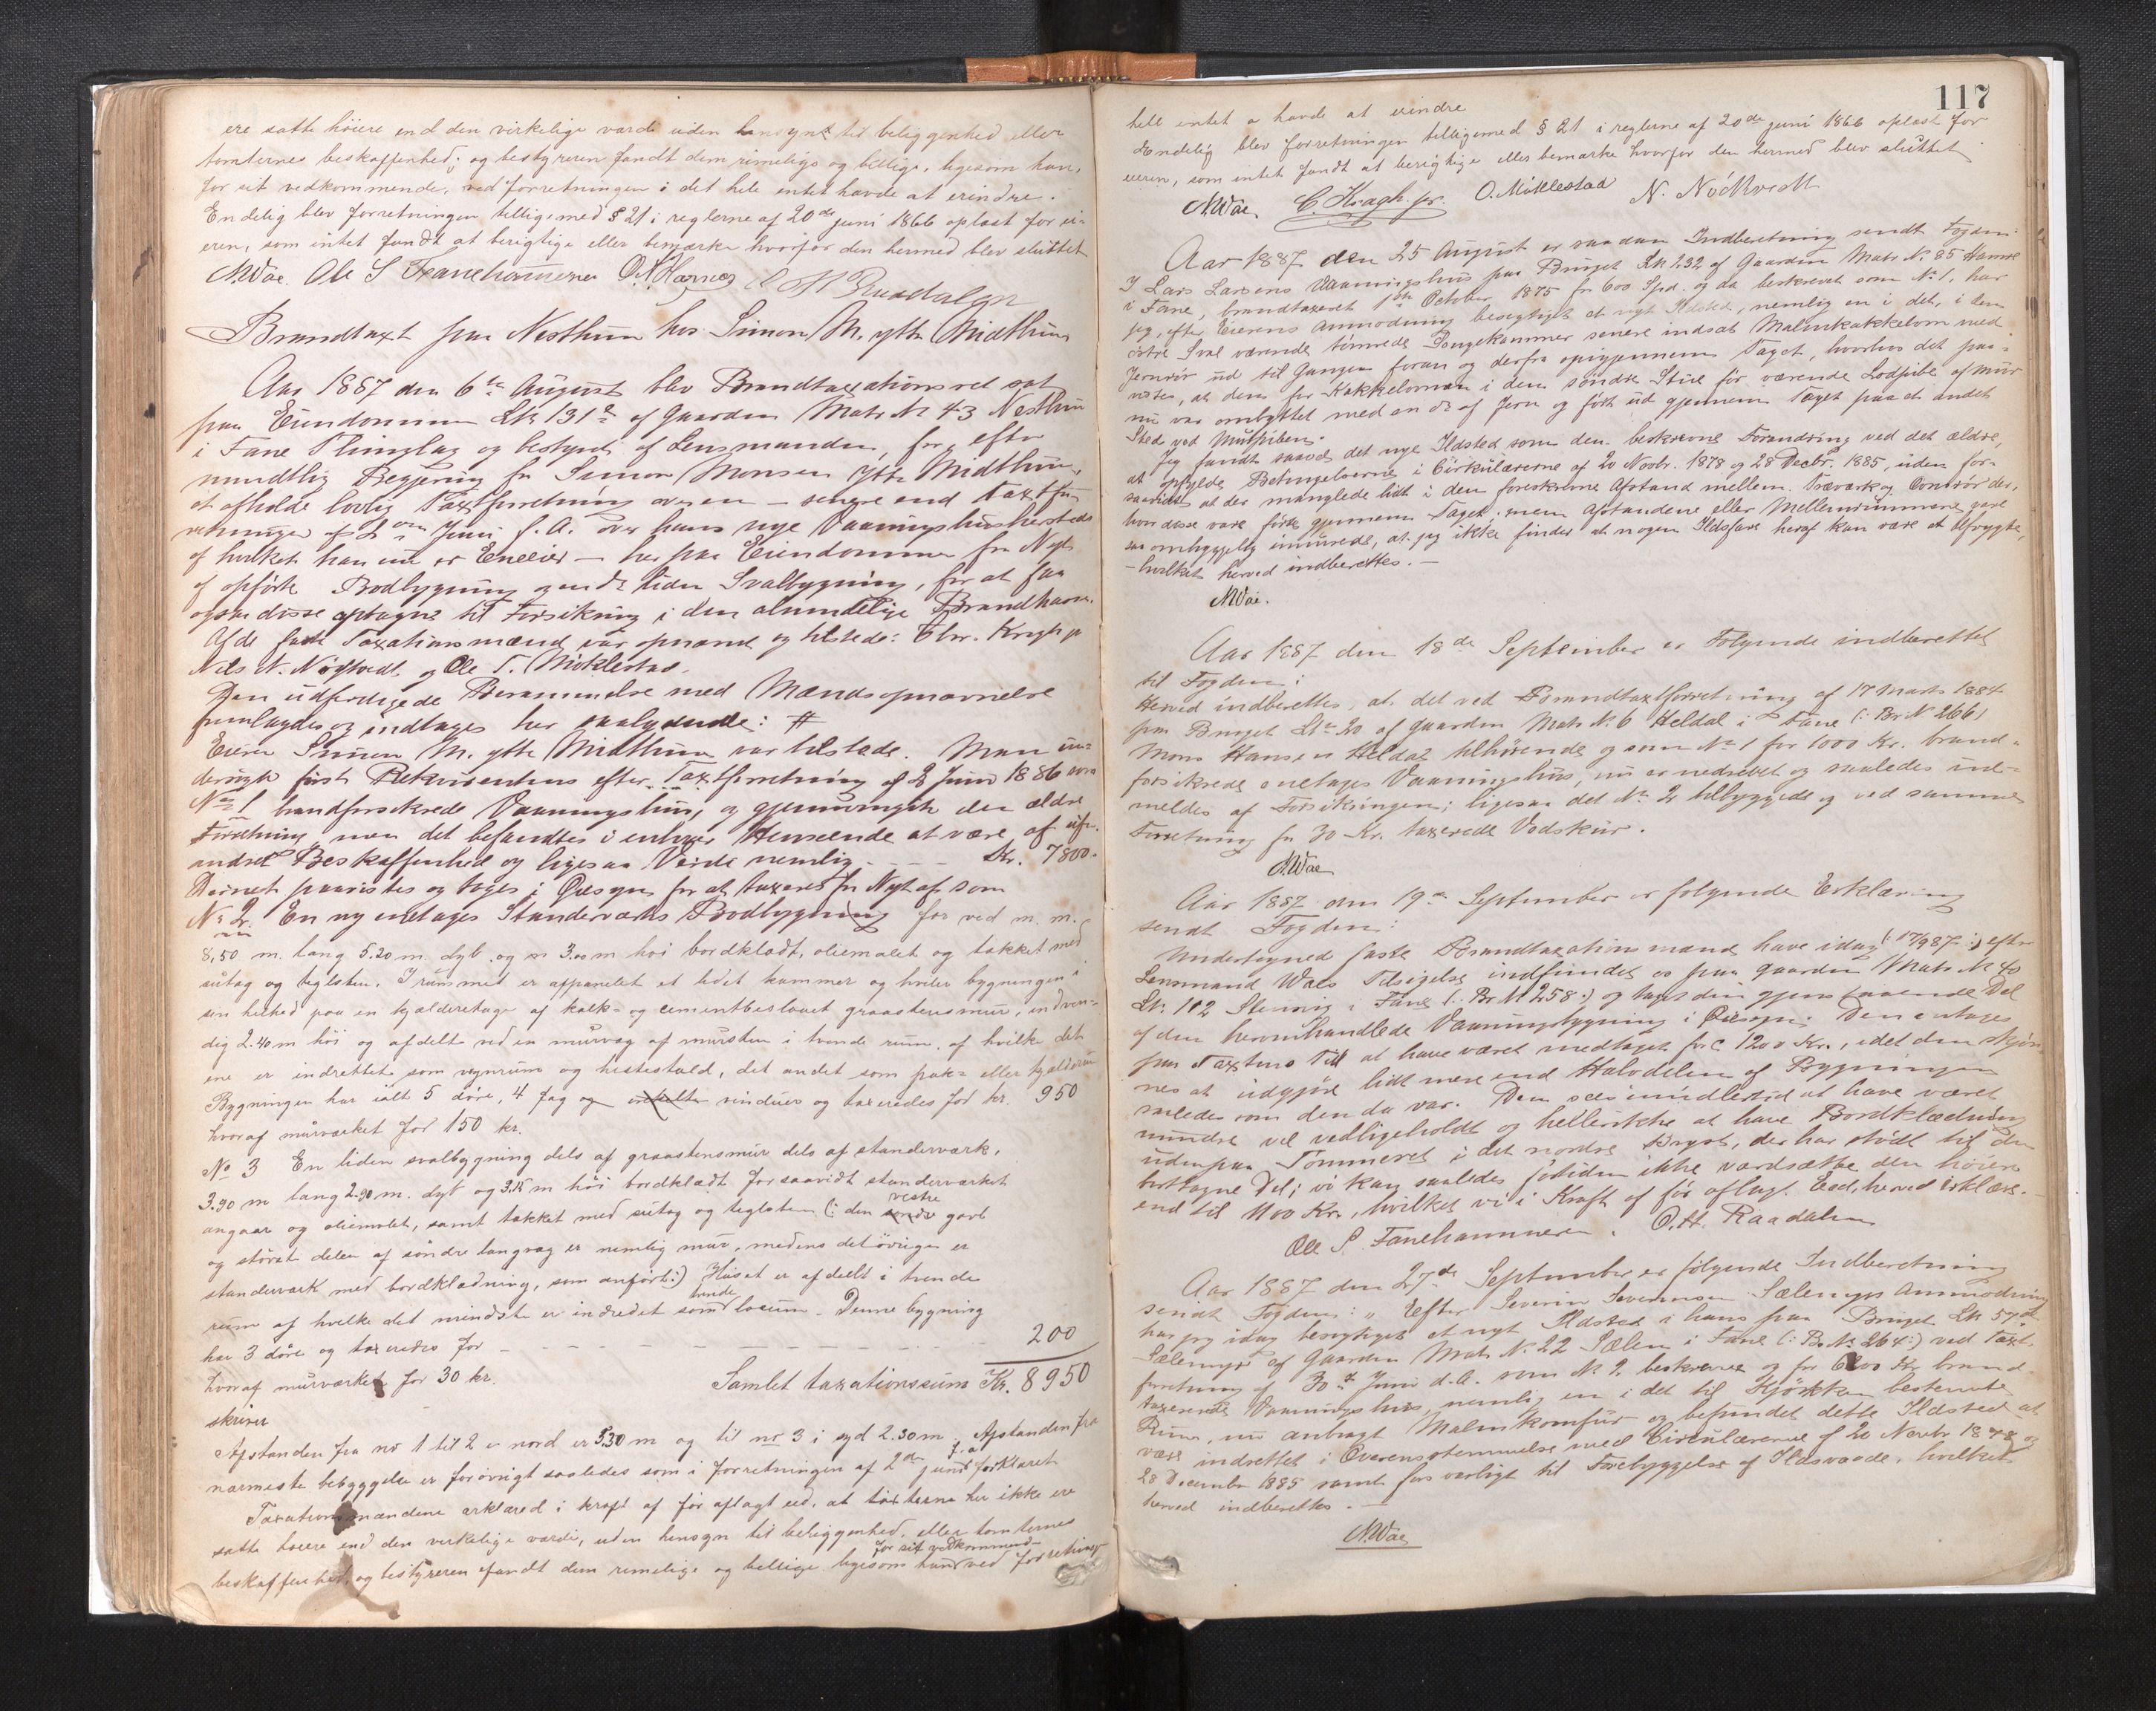 ere satte höiere end den virkelige værdi uden hensyn til beliggenhed eller
tomternes beskaffenhed; og bestyreren fandt dem rimelige og billige, ligesom han,
for sit vedkommende, ved forretningen i det hele intet havde at erindre.
Endelig blev forretningen tilligemed § 21 i reglerne af 20de juni 1866 oplæst for ei-
eren, som intet fandt at berigtige eller bemærke hvorfor den hermed blev sluttet
NWae. Ole S Fanehammeren O.N. Hernes O H Raadalen
Brandtaxt paa Nesthun hos Simon M. ytte Midthun
Aar 1887 den 6te August blev Brandtaxationsret sat
paa Eiendommen Lk 131a af Gaarden Matr № 43 Nesthun
i Fane Thinglag og bestyret af Lensmanden, for, efter
mundtlig Begjæring fra Simon Monsen ytte Midthun,
at afholde lovlig Taxtforretning over en – senere end Taxtfor-
retningen af 2den Juni f. A. over hans nye Vaaningshus
af hvilket han nu er Eneeier – her paa Eiendommen fra Nyt
af opført Bodbygning og en do liden Svalbygning, for at faa
ogsaa disse optagne til Forsikring i den almindelige Brandkasse.
Af de faste Taxationsmænd var opnævnt og tilstede: Chr. Kragh jr
Nils N. Nöstvedt og Ole T. Miklestad.
Den udfærdigede Berammelse med Mændsopnævnelse
fremlagdes og indtages her saalydende: #
Eieren Simon M. ytte Midthun var tilstede. Man un-
dersögte först Rekvirentens efter Taxtforretning af 2 Juni 1886 som
№ 1 brandforsikrede Vaaningshus, og gjennemgik den ældre
Forretning, men det befandtes i enhver Henseende at være af ufor-
andret Beskaffenhed og ligesaa Værdi nemlig - - - - Kr. 7800.
Dernæst paavistes og toges i Öiesyn for at taxeres fra Nyt af som
№ 2. En ny enetages Standerværks Bodbygning for ved m. m.
8,50 m. lang 5.20 m. dyb og 3.00 m höi bordklædt, oliemalet og takket med
sutag og teglsten. I rummet er afpanelet et lidet kammer og hviler bygningen i
sin helhed paa en kjælderetage af kalk- og cementbeslaaet graastensmur, indven-
dig 2.40 m höi og afdelt ved en murvæg af mursten i tvende rum, af hvilke det
ene er indrettet som vognrum og hestestald, det andet som pak- eller kjælderrum
Bygningen har ialt 5 döre, 4 fag og vinduer og taxeredes for kr. 950
hvoraf murværket for 150 kr.
№ 3 En liden svalbygning dels af graastensmur dels af standerværk,
3.90 m lang 2.90 m. dyb og 3.15 m höi bordklædt forsaavidt standerværket
angaar og oliemalet, samt takket med sutag og teglsten (: den vestre gavl
og störst delen af söndre langvæg er nemlig mur, medens det övrige er
standerværk med bordklædning, som anfört:) Huset er afdelt i tvende
rum af hvilke det mindste er indredet som locum. Denne bygning
har 3 döre og taxeredes for - - - - - - - - 200
hvoraf murværket for 30 kr. Samlet taxationssum Kr. 8950
skriver
Afstanden fra no 1 til 2 i nord er 5.30 m og til no 3 i syd 2.30 m. Afstanden fra
nærmeste bebyggelse er forövrigt saaledes som i forretningen af 2den juni f.a. forklaret
Taxationsmændene erklæred i kraft af för aflagt ed, at taxterne her ikke ere
satte höiere end den virkelige værdi, uden hensyn til beliggenhed, eller tomternes
beskaffenhed, og bestyreren fandt dem rimelige og billige ligesom han for sit vedkommend- ved forretning-
117
hele intet havde at erindre
Endelig blev forretningen tilligemed § 21 i reglerne af 20de juni 1866 oplæst for
eieren, som intet fandt at berigtige eller bemærke hvorfor den hermed blev sluttet
NWae. C. Kragh jr. O. Miklestad N. Nöstvedt
Aar 1887 den 25 August er saadan Indberetning sendt Fogden:
I Lars Larsens Vaaningshus paa Bruget Lk 132 af Gaarden Matr. № 85 Hamre
i Fane, brandtaxeret 1ste October 1875 for 600 Spd. og da beskrevet som № 1, har
jeg, efter Eierens Anmodning besigtiget et nyt Ildsted, nemlig en i det, i den
östre Sval værende tömrede Sengekammer senere indsat Malmkakkelovn med
Jernrör ud til Gangen foran og derfra op igjennem Taget, hvorhos det paa-
vistes, at den for Kakkelovnen i den söndre Stue för værende Lodpibe af Mur
nu var ombyttet med en do af Jern og fört ud gjennem Taget paa et andet
Sted ved Murpiben.
Jeg fandt saavel det nye Ildsted som den beskrevne Forandring ved det ældre,
at opfylde Betingelserne i Cirkulærerne af 20 Novbr. 1878 og 28 Decbr. 1885, uden for-
saavidt at der manglede lidt i den foreskrevne Afstand mellem Træværk og Ovnsrör der,
hvor disse vare förte gjennem Taget, men Afstandene eller Mellemrummene vare
saa omhyggelig inmurede, at jeg ikke finder at nogen Ildsfare heraf kan være at befrygte,
– hvilket herved indberettes. –
NWae.
Aar 1887 den 18de September er Fölgende indberettet
til Fogden:
Herved indberettes, at det ved Brandtaxtforretning af 17 Marts 1884
paa Bruget Lk 20 af Gaarden Matr. № 6 Heldal i Fane (: Br № 266)
Mons Hansen Heldal tilhörende og som № 1 for 1000 Kr. brand-
forsikrede enetages Vaaningshus, nu er nedrevet og saaledes ud-
meldes af Forsikringen; ligesaa det № 2 tilbyggede og ved samme
Forretning for 30 Kr. taxerede Vedskur.
NWae
Aar 1887 den 19de September er fölgende Erklæring
sendt Fogden:
Undertegnede faste Brandtaxationsmænd have idag (: 17/9 87 :) efter
Lensmand Waes Tilsigelse indfundet os paa Gaarden Matr. № 40
Lk 112 Stenvig i Fane (: Br. № 258:) og taget den gjenstaaende Del
af den heromhandlede Vaaningsbygning i Öiesyn. Den antages
paa Taxtens Tid at have været medtaget for C 1200 Kr., idet den skjön-
nes at udgjöre lidt mere end Halvdelen af Bygningen
saaledes som den da var. Den sees imidlertid at have været
mindre vel vedligeholdt og hellerikke at have Bordklædning
udenpaa Tömmeret i det nordre Bryst, der har stödt til den
borttagne Del; vi kan saaledes for tiden ikke værdsætte den höiere
end til 1100 Kr., hvilket vi i Kraft af för aflagt Eed, herved erklære. –
Ole S. Fanehammeren. O. H. Raadalen
Aar 1887 den 27de September er fölgende Indberetning
sendt Fogden: „Efter Severin Severinsen Sælemyr Anmodning
har jeg idag besigtiget et nyt Ildsted i hans paa Bruget Lk 57
Sælemyr af Gaarden Matr. № 22 Sælen i Fane (: Br. № 264:) ved Taxt-
forretning af 30te Juni d. A. som № 2 beskrevne og for 6200 Kr brand-
taxerede Vaaningshus, nemlig en i det til Kjökken bestemte
Rum, nu anbragt Malmkomfur og befundet dette Ildsted at
være indrettet i Overensstemmelse med Cirkulærerne af 20 Novbr 1878 og
28 December 1885 samt forsvarligt til Forebyggelse af Ildsvaade, hvilket
herved indberettes. –
NWae